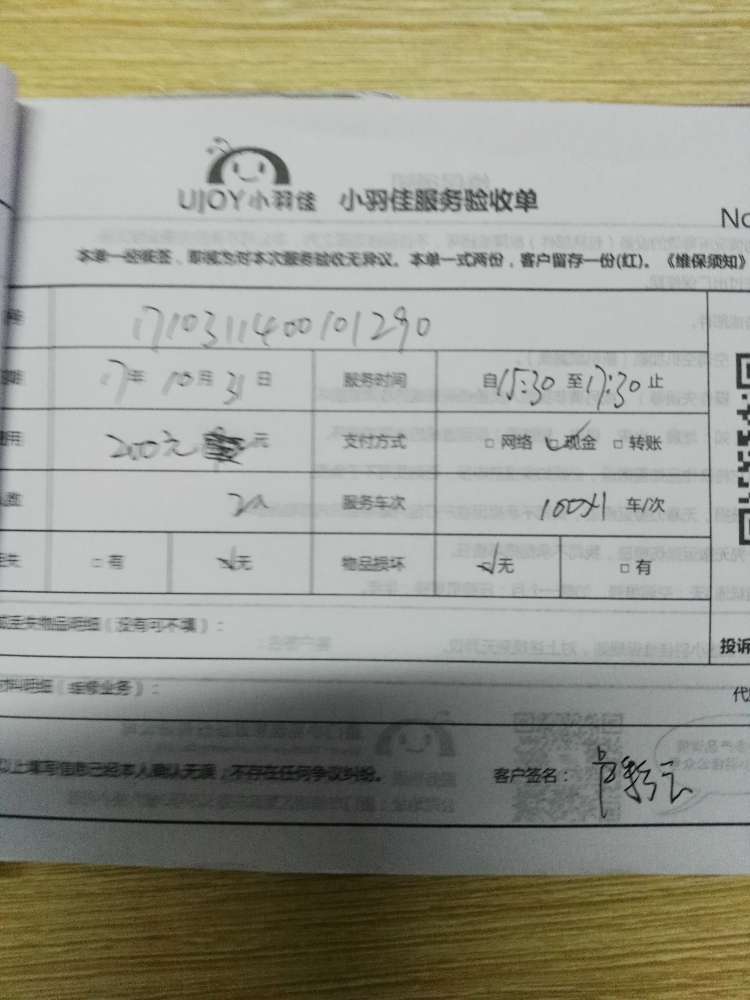 UJOY小羽佳 小羽佳服务验收单
No
本单一经签签，即视为对本次服务验收无异议。本单一式两份，客户留存一份(红)。《维保须知》
1710311400101290
17年 10月 31日 服务时间 自15:30至17:30止
200元 元 支付方式 □网络 ☑现金 □转账
2人 服务车次 车/次
□有 ☑无 物品损坏 ☑无 □有
丢失物品明细（没有可不填）：
投诉
明细（维修业务）：
以上填写信息已经本人确认无误，不存在任何争议纠纷。 客户签名：